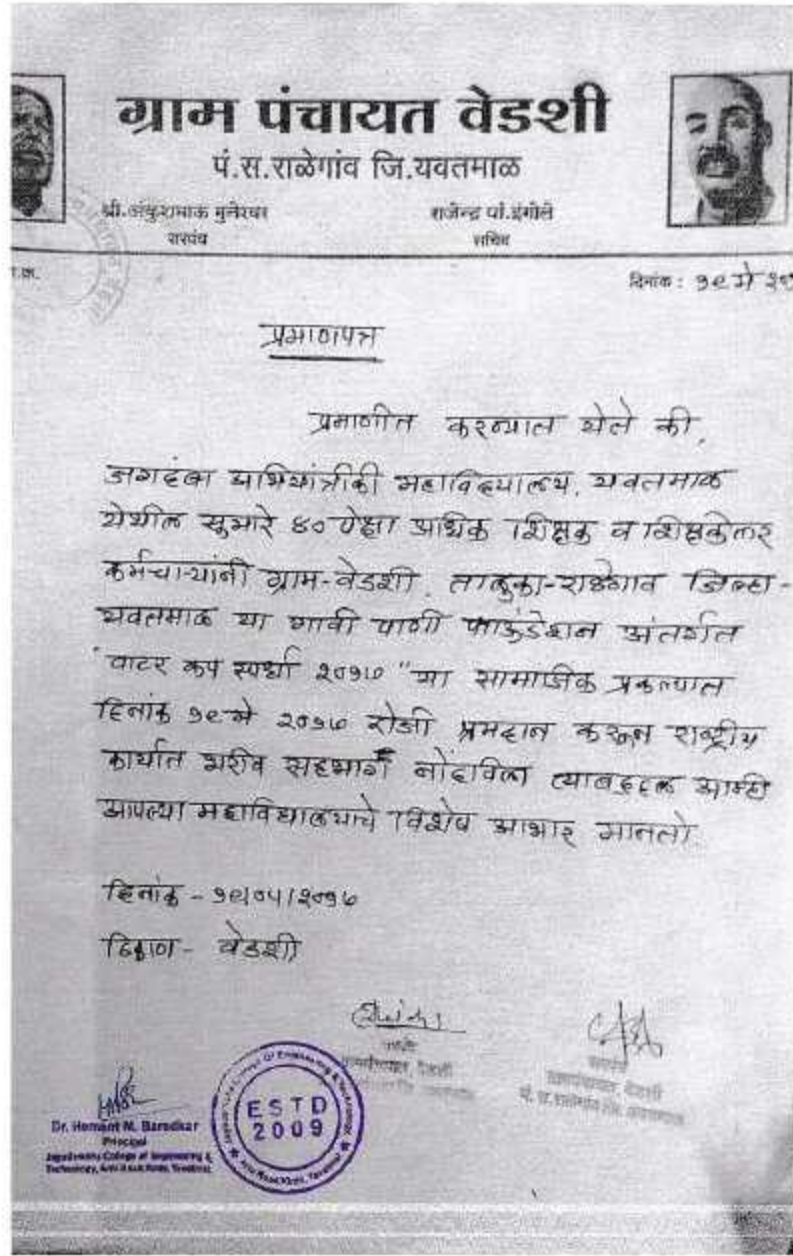 ग्राम पंचायत वेडशी
पं.स.राळेगांव जि.यवतमाळ
श्री.अंकुशभाऊ मुनेश्वर राजेन्द्र पां.इंगोले
सरपंच सचिव
दिनांक : १९ मे २०
प्रमाणपत्र
प्रमाणीत करण्यात येते की,
जगदंबा अभियांत्रीकी महाविद्यालय, यवतमाळ
येथील सुमारे ४० पेक्षा अधिक शिक्षक व शिक्षकेतर
कर्मचाऱ्यांनी ग्राम-वेडशी, तालुका-राळेगाव जिल्हा-
यवतमाळ या गावी पाणी फाऊंडेशन अंतर्गत
"वाटर कप स्पर्धा २०१७" या सामाजिक प्रकल्पात
दिनांक १९ मे २०१७ रोजी श्रमदान करून राष्ट्रीय
कार्यात भरीव सहभाग नोंदविला त्याबद्दल आम्ही
आपल्या महाविद्यालयाचे विशेष आभार मानतो.
दिनांक - १९/०५/२०१७
ठिकाण - वेडशी
सरपंच
Dr. Hemant M. Baradkar
Principal
Jagadambha College of Engineering &
Technology, Arni Road Kinhi, Yavatmal
ESTD
2009